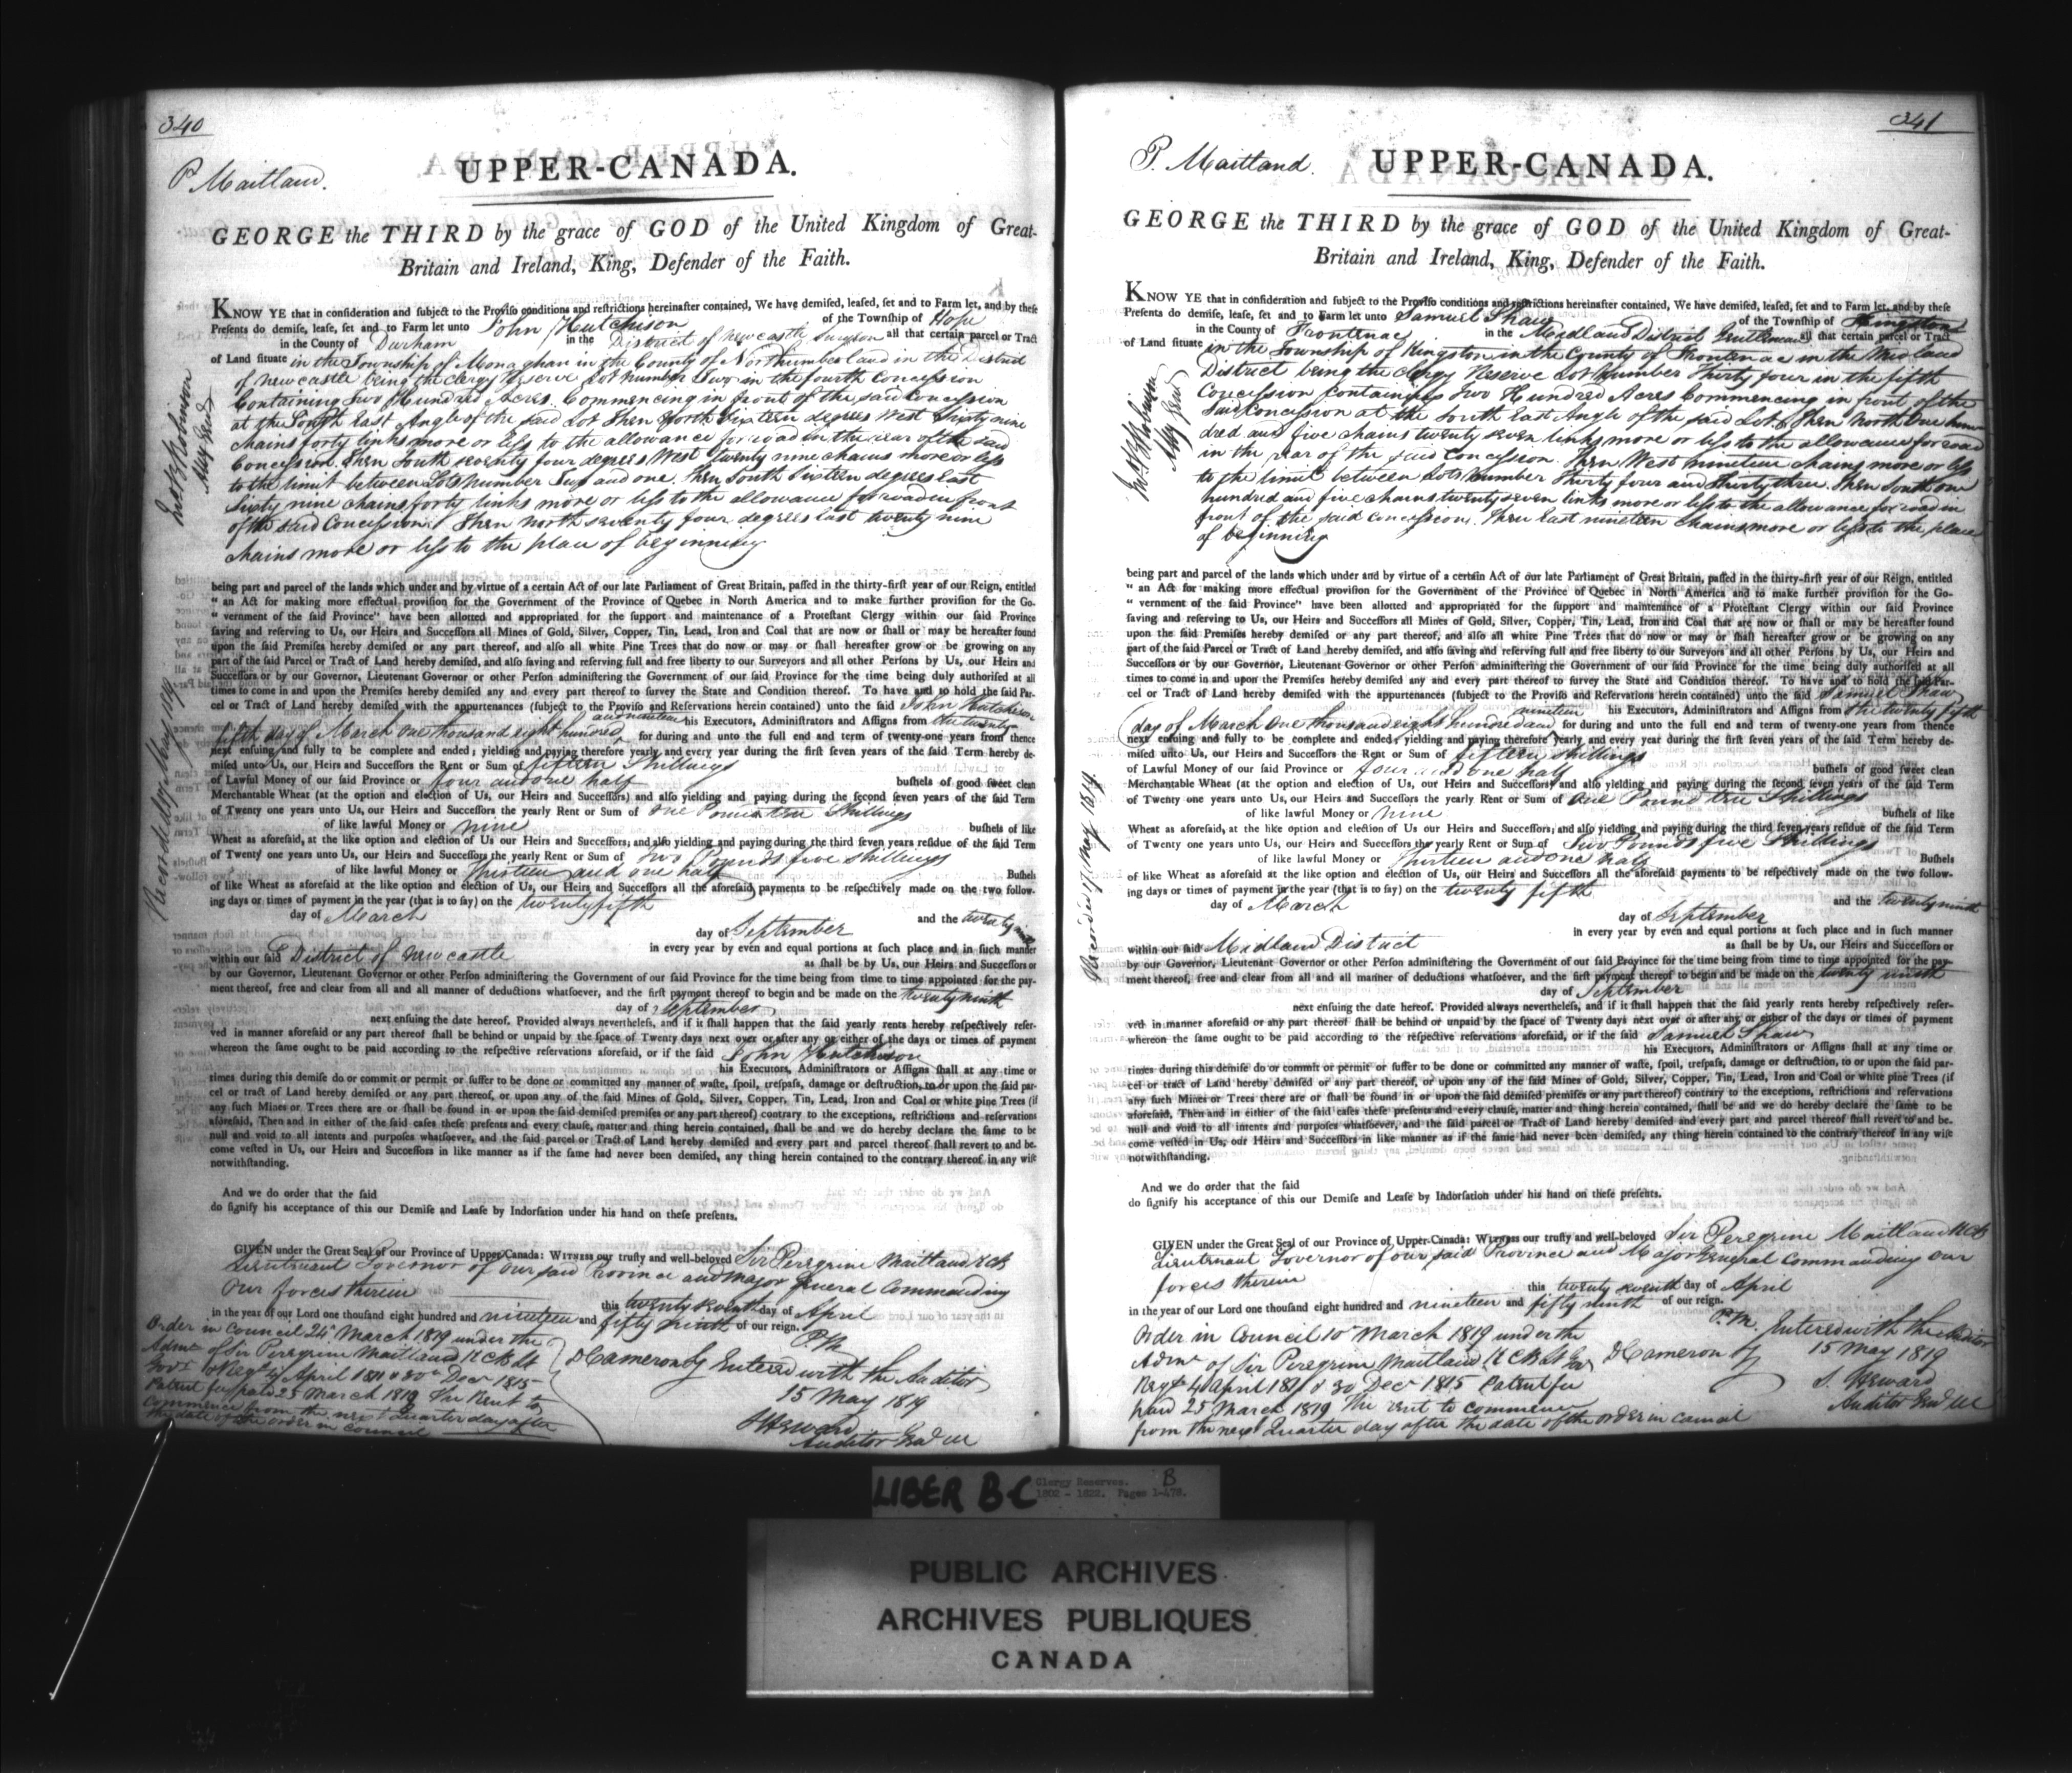 340
P Maitland.
UPPER-CANADA.
GEORGE the THIRD by the grace of GOD of the United Kingdom of Great-
Britain and Ireland, King, Defender of the Faith.
KNOW YE that in consideration and subject to the Proviso conditions and restrictions hereinafter contained, We have demised, leased, set and to Farm let, and by these
Presents do demise, lease, set and to Farm let unto John Hutchison of the Township of Hope
in the County of Durham in the District of Newcastle all that certain parcel or Tract
of Land situate in the Township of Monaghan in the County of Northumberland in the District
of Newcastle being the Clergy Reserve Lot Number Two in the fourth Concession
Containing Two Hundred Acres. Commencing in front of the said Concession
at the South East Angle of the said Lot Then North Sixteen degrees West Sixty nine
chains forty links more or less to the allowance for road in the rear of the said
Concession. Then South seventy four degrees West twenty nine chains more or less
to the limit between Lots Number Two and one, Then South Sixteen degrees East
Sixty nine chains forty links more or less to the allowance for road in front
of the said Concession. Then North seventy four degrees East twenty nine
chains more or less to the place of beginning
Jno B Robinson
Atty Genl
Recorded 17 May 1819
being part and parcel of the lands which under and by virtue of a certain Act of our late Parliament of Great Britain, passed in the thirty-first year of our Reign, entitled
" an Act for making more effectual provision for the Government of the Province of Quebec in North America and to make further provision for the Go-
" vernment of the said Province" have been allotted and appropriated for the support and maintenance of a Protestant Clergy within our said Province
saving and reserving to Us, our Heirs and Successors all Mines of Gold, Silver, Copper, Tin, Lead, Iron and Coal that are now or shall or may be hereafter found
upon the said Premises hereby demised or any part thereof, and also all white Pine Trees that do now or may or shall hereafter grow or be growing on any
part of the said Parcel or Tract of Land hereby demised, and also saving and reserving full and free liberty to our Surveyors and all other Persons by Us, our Heirs and
Successors or by our Governor, Lieutenant Governor or other Person administering the Government of our said Province for the time being duly authorised at all
times to come in and upon the Premises hereby demised any and every part thereof to survey the State and Condition thereof. To have and to hold the said Par-
cel or Tract of Land hereby demised with the appurtenances (subject to the Proviso and Reservations herein contained) unto the said John Hutchison
his Executors, Administrators and Assigns from the twenty
fifth day of March one thousand eight hundred and nineteen for during and unto the full end and term of twenty-one years from thence
next ensuing and fully to be complete and ended; yielding and paying therefore yearly and every year during the first seven years of the said Term hereby de-
mised unto Us, our Heirs and Successors the Rent or Sum of fifteen Shillings
of Lawful Money of our said Province or four and one half bushels of good sweet clean
Merchantable Wheat (at the option and election of Us, our Heirs and Successors) and also yielding and paying during the second seven years of the said Term
of Twenty one years unto Us, our Heirs and Successors the yearly Rent or Sum of One Pound ten Shillings
of like lawful Money or nine bushels of like
Wheat as aforesaid, at the like option and election of Us our Heirs and Successors; and also yielding and paying during the third seven years residue of the said Term
of Twenty one years unto Us, our Heirs and Successors the yearly Rent or Sum of Two Pounds five shillings
of like lawful Money or Thirteen and one half Bushels
of like Wheat as aforesaid at the like option and election of Us, our Heirs and Successors all the aforesaid payments to be respectively made on the two follow-
ing days or times of payment in the year (that is to say) on the twenty fifth
day of March and the twenty ninth
day of September in every year by even and equal portions at such place and in such manner
within our said District of Newcastle as shall be by Us, our Heirs and Successors or
by our Governor, Lieutenant Governor or other Person administering the Government of our said Province for the time being from time to time appointed for the pay-
ment thereof, free and clear from all and all manner of deductions whatsoever, and the first payment thereof to begin and be made on the twenty ninth
day of September
next ensuing the date hereof. Provided always nevertheless, and if it shall happen that the said yearly rents hereby respectively reser-
ved in manner aforesaid or any part thereof shall be behind or unpaid by the space of Twenty days next over or after any or either of the days or times of payment
whereon the same ought to be paid according to the respective reservations aforesaid, or if the said John Hutchison
his Executors, Administrators or Assigns shall at any time or
times during this demise do or commit or permit or suffer to be done or committed any manner of waste, spoil, trespass, damage or destruction, to or upon the said par-
cel or tract of Land hereby demised or any part thereof, or upon any of the said Mines of Gold, Silver, Copper, Tin, Lead, Iron and Coal or white pine Trees (if
any such Mines or Trees there are or shall be found in or upon the said demised premises or any part thereof) contrary to the exceptions, restrictions and reservations
aforesaid, Then and in either of the said cases these presents and every clause, matter and thing herein contained, shall be and we do hereby declare the same to be
null and void to all intents and purposes whatsoever, and the said parcel or Tract of Land hereby demised and every part and parcel thereof shall revert to and be-
come vested in Us, our Heirs and Successors in like manner as if the same had never been demised, any thing herein contained to the contrary thereof in any wise
notwithstanding.
And we do order that the said
do signify his acceptance of this our Demise and Lease by Indorsation under his hand on these presents.
GIVEN under the Great Seal of our Province of Upper Canada: WITNESS our trusty and well-beloved Sir Peregrine Maitland KCB
Lieutenant Governor of our said Province and Major General Commanding
Our forces therein
this twenty seventh day of April
in the year of our Lord one thousand eight hundred and nineteen and fifty ninth of our reign.
P.M.
Order in Council 24 March 1819 under the
Admn of Sir Peregrine Maitland KCB Lt
Govr & Regns 4 April 1811 & 30 Decr 1815
Patent fee paid 25 March 1819 The Rent to
Commence from the next Quarter day after
the date of the order in Council
D Cameron Entered with the Auditor
15 May 1819
S Heward
Auditor Genl UC
341
P. Maitland.
UPPER-CANADA.
GEORGE the THIRD by the grace of GOD of the United Kingdom of Great-
Britain and Ireland, King, Defender of the Faith.
KNOW YE that in consideration and subject to the Proviso conditions and restrictions hereinafter contained, We have demised, leased, set and to Farm let, and by these
Presents do demise, lease, set and to Farm let unto Samuel Shaw of the Township of Kingston
in the County of Frontenac in the Midland District Gentleman all that certain parcel or Tract
of Land situate in the Township of Kingston in the County of Frontenac in the Midland
District being the Clergy Reserve Lot Number Thirty four in the fifth
Concession Containing Two Hundred Acres Commencing in front of the
said Concession at the South East Angle of the said Lot. Then North One hun
dred and five chains twenty seven links more or less to the allowance for road
in the rear of the said Concession. Then West nineteen chains more or less
to the limit between Lots Number Thirty four and Thirty three. Then South one
hundred and five chains twenty seven links more or less to the allowance for road in
front of the said concession. Then East nineteen chains more or less to the place
of beginning
Jno B Robinson
Atty Genl
Recorded 17 May 1819.
being part and parcel of the lands which under and by virtue of a certain Act of our late Parliament of Great Britain, passed in the thirty-first year of our Reign, entitled
" an Act for making more effectual provision for the Government of the Province of Quebec in North America and to make further provision for the Go-
" vernment of the said Province" have been allotted and appropriated for the support and maintenance of a Protestant Clergy within our said Province
saving and reserving to Us, our Heirs and Successors all Mines of Gold, Silver, Copper, Tin, Lead, Iron and Coal that are now or shall or may be hereafter found
upon the said Premises hereby demised or any part thereof, and also all white Pine Trees that do now or may or shall hereafter grow or be growing on any
part of the said Parcel or Tract of Land hereby demised, and also saving and reserving full and free liberty to our Surveyors and all other Persons by Us, our Heirs and
Successors or by our Governor, Lieutenant Governor or other Person administering the Government of our said Province for the time being duly authorised at all
times to come in and upon the Premises hereby demised any and every part thereof to survey the State and Condition thereof. To have and to hold the said Par-
cel or Tract of Land hereby demised with the appurtenances (subject to the Proviso and Reservations herein contained) unto the said Samuel Shaw
his Executors, Administrators and Assigns from the twenty fifth
day of March One thousand eight hundred and nineteen for during and unto the full end and term of twenty-one years from thence
next ensuing and fully to be complete and ended, yielding and paying therefore yearly and every year during the first seven years of the said Term hereby de-
mised unto Us, our Heirs and Successors the Rent or Sum of fifteen Shillings
of Lawful Money of our said Province or four and one half bushels of good sweet clean
Merchantable Wheat (at the option and election of Us, our Heirs and Successors) and also yielding and paying during the second seven years of the said Term
of Twenty one years unto Us, our Heirs and Successors the yearly Rent or Sum of One Pound ten Shillings
of like lawful Money or nine bushels of like
Wheat as aforesaid, at the like option and election of Us our Heirs and Successors; and also yielding and paying during the third seven years residue of the said Term
of Twenty one years unto Us, our Heirs and Successors the yearly Rent or Sum of Two Pounds five Shillings
of like lawful Money or Thirteen and one half Bushels
of like Wheat as aforesaid at the like option and election of Us, our Heirs and Successors all the aforesaid payments to be respectively made on the two follow-
ing days or times of payment in the year (that is to say) on the twenty fifth
day of March and the twenty ninth
day of September in every year by even and equal portions at such place and in such manner
within our said Midland District as shall be by Us, our Heirs and Successors or
by our Governor, Lieutenant Governor or other Person administering the Government of our said Province for the time being from time to time appointed for the pay-
ment thereof, free and clear from all and all manner of deductions whatsoever, and the first payment thereof to begin and be made on the twenty ninth
day of September
next ensuing the date hereof. Provided always nevertheless, and if it shall happen that the said yearly rents hereby respectively reser-
ved in manner aforesaid or any part thereof shall be behind or unpaid by the space of Twenty days next over or after any or either of the days or times of payment
whereon the same ought to be paid according to the respective reservations aforesaid, or if the said Samuel Shaw
his Executors, Administrators or Assigns shall at any time or
times during this demise do or commit or permit or suffer to be done or committed any manner of waste, spoil, trespass, damage or destruction, to or upon the said par-
cel or tract of Land hereby demised or any part thereof, or upon any of the said Mines of Gold, Silver, Copper, Tin, Lead, Iron and Coal or white pine Trees (if
any such Mines or Trees there are or shall be found in or upon the said demised premises or any part thereof) contrary to the exceptions, restrictions and reservations
aforesaid, Then and in either of the said cases these presents and every clause, matter and thing herein contained, shall be and we do hereby declare the same to be
null and void to all intents and purposes whatsoever, and the said parcel or Tract of Land hereby demised and every part and parcel thereof shall revert to and be-
come vested in Us, our Heirs and Successors in like manner as if the same had never been demised, any thing herein contained to the contrary thereof in any wise
notwithstanding.
And we do order that the said
do signify his acceptance of this our Demise and Lease by Indorsation under his hand on these presents.
GIVEN under the Great Seal of our Province of Upper-Canada: WITNESS our trusty and well-beloved Sir Peregrine Maitland KCB
Lieutenant Governor of our said Province and Major General Commanding our
forces therein
this twenty seventh day of April
in the year of our Lord one thousand eight hundred and nineteen and fifty ninth of our reign.
P.M. Entered with the Auditor
Order in Council 10 March 1819 under the
Admn of Sir Peregrine Maitland KCB Lt Gov D Cameron 15 May 1819
Regns 4 April 1811 & 30 Decr 1815 Patent fee S. Heward
paid 25 March 1819 The rent to commence Auditor Genl UC
from the next Quarter day after the date of the order in Council
LIBER B-C
Clergy Reserves. B
1802 - 1822. Pages 1-478.
PUBLIC ARCHIVES
ARCHIVES PUBLIQUES
CANADA